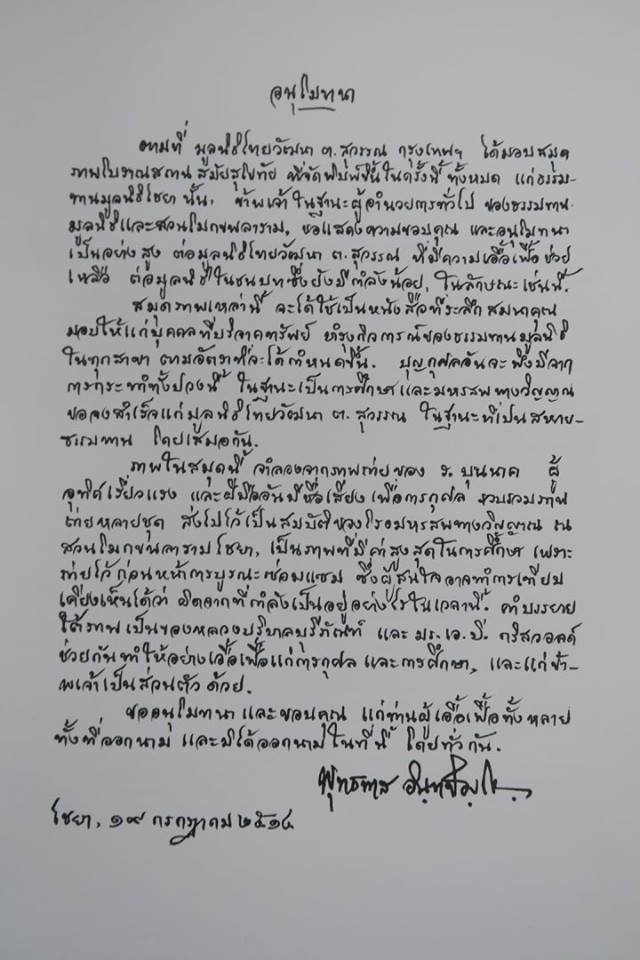 อนุโมทนา
ตามที่ มูลนิธิไทยวัฒนา ต. สุวรรณ กรุงเทพฯ ได้มอบสมุด
ภาพโบราณสถาน สมัยสุโขทัย ที่จัดพิมพ์ขึ้นในครั้งนี้ ทั้งหมด แก่ธรรม-
ทานมูลนิธิไชยา นั้น, ข้าพเจ้าในฐานะผู้อำนวยการทั่วไป ของธรรมทาน
มูลนิธิและสวนโมกขพลาราม, ขอแสดงความขอบคุณ และอนุโมทนา
เป็นอย่างสูง ต่อมูลนิธิไทยวัฒนา ต. สุวรรณ ที่มีความเอื้อเฟื้อช่วย
เหลือ ต่อมูลนิธิในชนบทซึ่งยังมีกำลังน้อย, ในลักษณะเช่นนี้.
สมุดภาพเหล่านี้ จะได้ใช้เป็นหนังสือที่ระลึก สมนาคุณ
มอบให้แก่บุคคลที่บริจาคทรัพย์ บำรุงกิจการณ์ของธรรมทานมูลนิธิ
ในทุกสาขา ตามอัตราที่จะได้กำหนดขึ้น. บุญกุศลอันจะพึงมีจาก
การกระทำทั้งปวงนี้ ในฐานะเป็นการศึกษาและมหรสพทางวิญญาณ
ขอจงสำเร็จแก่มูลนิธิไทยวัฒนา ต. สุวรรณ ในฐานะที่เป็นสหาย-
ธรรมทาน โดยเสมอกัน.
ภาพในสมุดนี้ จำลองจากภาพถ่ายของ ร. บุนนาค ผู้
อุทิศเรี่ยวแรง และฝีมืออันมีชื่อเสียง เพื่อการกุศล รวบรวม
ถ่ายหลายชุด ส่งไปไว้เป็นสมบัติของโรงมหรสพทางวิญญาณ ณ
สวนโมกขพลาราม ไชยา, เป็นภาพที่มีค่าสูงสุดในการศึกษา เพราะ
ถ่ายไว้ก่อนหน้าการบูรณะซ่อมแซม ซึ่งผู้สนใจอาจทำการเทียบ
เคียงเห็นได้ว่า ผิดจากที่กำลังเป็นอยู่อย่างไรในเวลานี้. คำบรรยาย
ใต้ภาพ เป็นของหลวงบริบาลบุรีภัณฑ์ และ มร. เอ. บี. กริสวอลด์
ช่วยกันทำให้อย่างเอื้อเฟื้อแก่การกุศล และการศึกษา, และแก่ข้า-
พเจ้าเป็นส่วนตัวด้วย.
ขออนุโมทนา และขอบคุณ แก่ท่านผู้เอื้อเฟื้อทั้งหลาย
ทั้งที่ออกนาม และมิได้ออกนามในที่นี้ โดยทั่วกัน.
พุทธทาส อินฺทปญฺโญ.
ไชยา, ๑๙ กรกฎาคม ๒๕๑๔